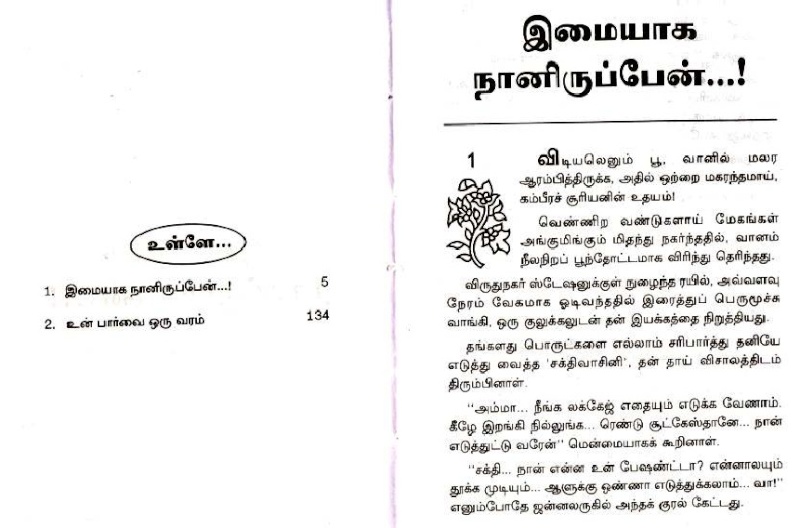 உள்ளே...
1. இமையாக நானிருப்பேன்...! 5
2. உன் பார்வை ஒரு வரம் 134
இமையாக
நானிருப்பேன்...!
1
விடியலெனும் பூ, வானில் மலர
ஆரம்பித்திருக்க, அதில் ஒற்றை மகரந்தமாய்,
கம்பீரச் சூரியனின் உதயம்!
வெண்ணிற வண்டுகளாய் மேகங்கள்
அங்குமிங்கும் மிதந்து நகர்ந்ததில், வானம்
நீலநிறப் பூந்தோட்டமாக விரிந்து தெரிந்தது.
விருதுநகர் ஸ்டேஷனுக்குள் நுழைந்த ரயில், அவ்வளவு
நேரம் வேகமாக ஓடிவந்ததில் இரைத்துப் பெருமூச்சு
வாங்கி, ஒரு குலுக்கலுடன் தன் இயக்கத்தை நிறுத்தியது.
தங்களது பொருட்களை எல்லாம் சரிபார்த்து தனியே
எடுத்து வைத்த 'சக்திவாசினி', தன் தாய் விசாலத்திடம்
திரும்பினாள்.
"அம்மா... நீங்க லக்கேஜ் எதையும் எடுக்க வேணாம்.
கீழே இறங்கி நில்லுங்க... ரெண்டு சூட்கேஸ்தானே... நான்
எடுத்துட்டு வரேன்" மென்மையாகக் கூறினாள்.
"சக்தி... நான் என்ன உன் பேஷண்ட்டா? என்னாலயும்
தூக்க முடியும்... ஆளுக்கு ஒண்ணா எடுத்துக்கலாம்... வா!"
எனும்போதே ஜன்னலருகில் அந்தக் குரல் கேட்டது.